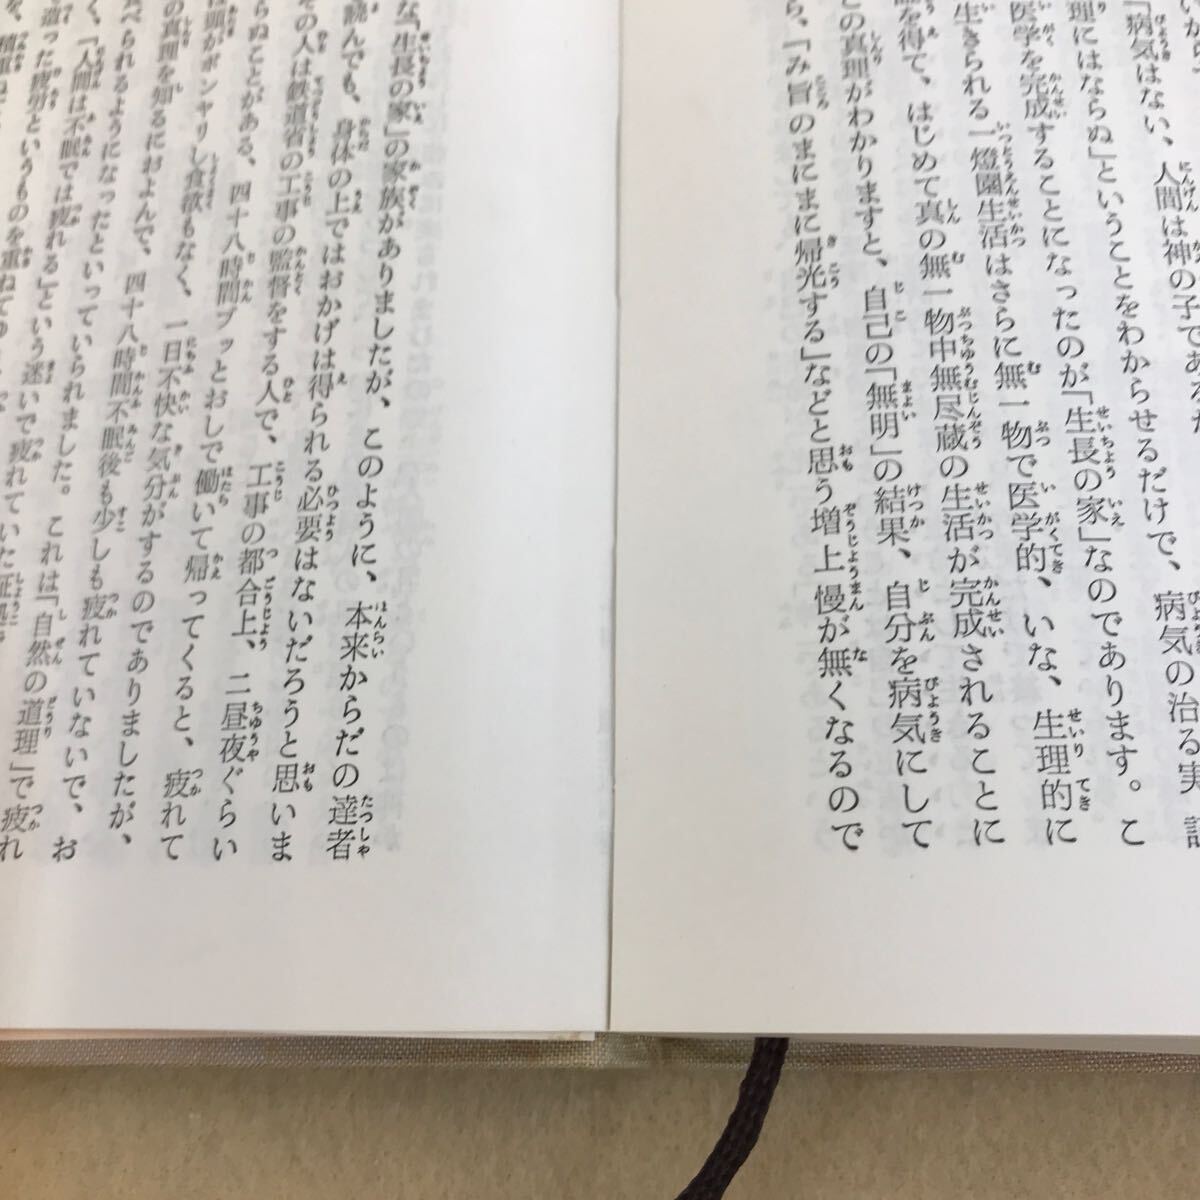 いから
「病気はない、人間は神の子であるだ
理にはならぬ」ということをわからせるだけで、病気の治る実証
医学を完成することになったのが「生長の家」なのであります。こ
生きられる一燈園生活はさらに無一物で医学的、いな、生理的に
を得て、はじめて真の無一物中無尽蔵の生活が完成されることに
この真理がわかりますと、自己の「無明」の結果、自分を病気にして
ら、「み旨のまにまに帰光する」などと思う増上慢が無くなるので
な「生長の家」の家族がありましたが、このように、本来からだの達者
読んでも、身体の上ではおかげは得られる必要はないだろうと思いま
その人は鉄道省の工事の監督をする人で、工事の都合上、二昼夜ぐらい
らぬことがある、四十八時間ブッとおしで働いて帰ってくると、疲れて
は頭がボンヤリし食欲もなく、一日不快な気分がするのでありましたが、
の真理を知るにおよんで、四十八時間不眠後も少しも疲れていないで、お
べられるようになったといっていられました。これは「自然の道理」で疲れ
く、「人間は不眠では疲れる」という迷いで疲れていた証拠
遣った疲労というものを重ねて
を、積重ね